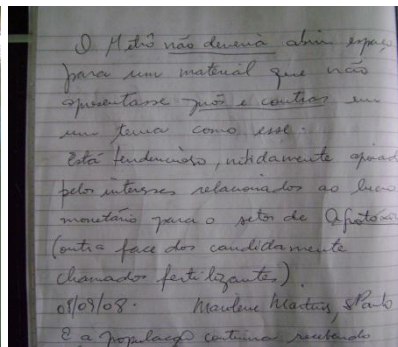 O Metrô não deveria abrir espaço
para um material que não
apresentasse prós e contras em
um tema como esse.
Está tendencioso, nitidamente apoiad
pelos interesses relacionados ao lucro
monetário para o setor de Agrotóxi
(outra face dos candidamente
chamados fertilizantes).
09/08. Marlene Martins, S Paulo
E a população continua recebendo